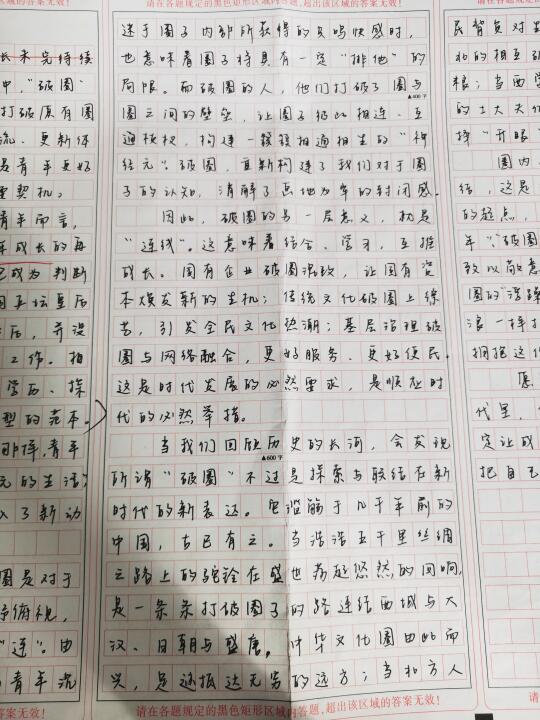 请在各题规定的黑色矩形区域内答题,超出该区域的答案无效!
长未完待续
中,“破圈”
打破原有圈
流、更新体
是青年更好
重契机。
青年而言,
年成长的再
已成为判断
后,并没
工作。相
学历、探
型的范本。
那样,青年
元的生活;
入了新动
圈是对于
俯视,
“连”。由
青年沉
迷于圈子内部所获得的共鸣快感时,
也意味着圈子将具有一定“排他”的
局限。而破圈的人,他们打破了圈与
▲400字
圈之间的壁垒,让圈子彼此相连、互
通概权,构建一簇簇相通相生的“神
经元”。破圈,重新构建了我们对于圈
子的认知,消解了画地为牢的封闭感。
因此,破圈的另一层意义,视为
“连线”。这意味着结合、学习,互推
成长。国有企业破圈混改,让国有资
本焕发新的生机;传统文化破圈上综
艺,引发全民文化热潮;基层治理破
圈与网络融合,更好服务、更好便民。
这是时代发展的必然要求,是顺应时
代的必然举措。
当我们回眸历史的长河,会发现
▲600字
所谓“破圈”不过是探索与联结在新
时代的新表达。它滥觞于几千年前的
中国,古已有之。当浩浩五千里丝绸
之路上的驼铃在盛世荡起悠然的回响,
是一条条打破圈子的路连结西域与大
汉、日朝与盛唐。中华文化圈由此而
兴,足迹抵达无穷的远方;当北方人
请在各题规定的黑色矩形区域内答题,超出该区域的答案无效!
请在各题规定的
民背负对生
北的相互破
粮;当西学
的士大夫
择“开眼
圈内
结,这是
的起点,
年”、“破圈
致以敬意
圈的“浮躁
浪一样打
拥抱这
愿
代里,
定让我
把自己
请在各题规定的